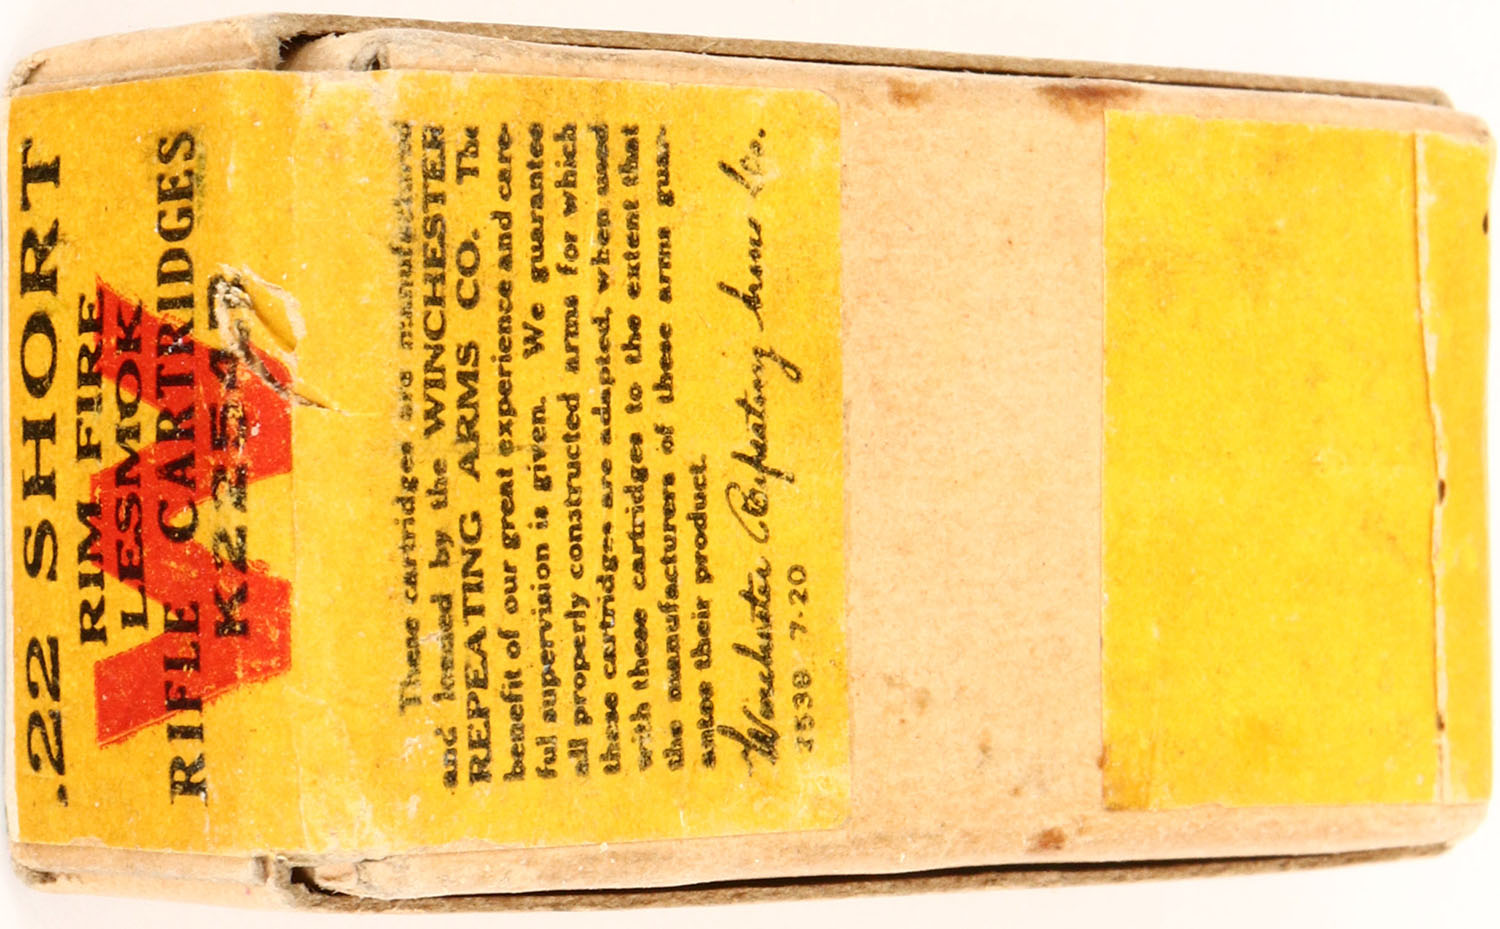 .22 SHORT
RIM FIRE
LESMOK
RIFLE CARTRIDGES
K2254R
W
These cartridges are manufactured
and loaded by the WINCHESTER
REPEATING ARMS CO. The
benefit of our great experience and care-
ful supervision is given. We guarantee
all properly constructed arms for which
these cartridges are adapted, when used
with these cartridges to the extent that
the manufacturers of these arms guar-
antee their product.
Winchester Repeating Arms Co.
1538 7-20